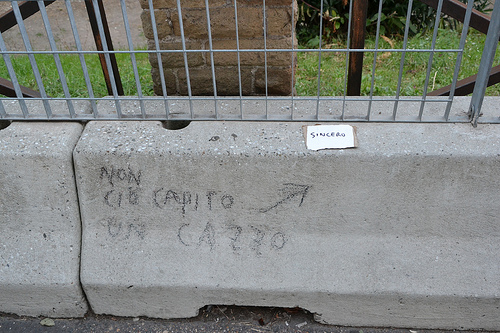 SINCERO
NON
CIÒ CAPITO
UN CAZZO